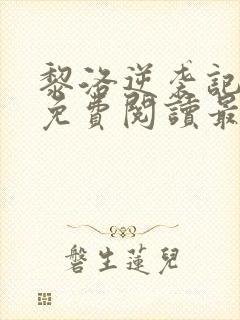 黎洛逆袭記
免費閱讀最
磐生蓮兒